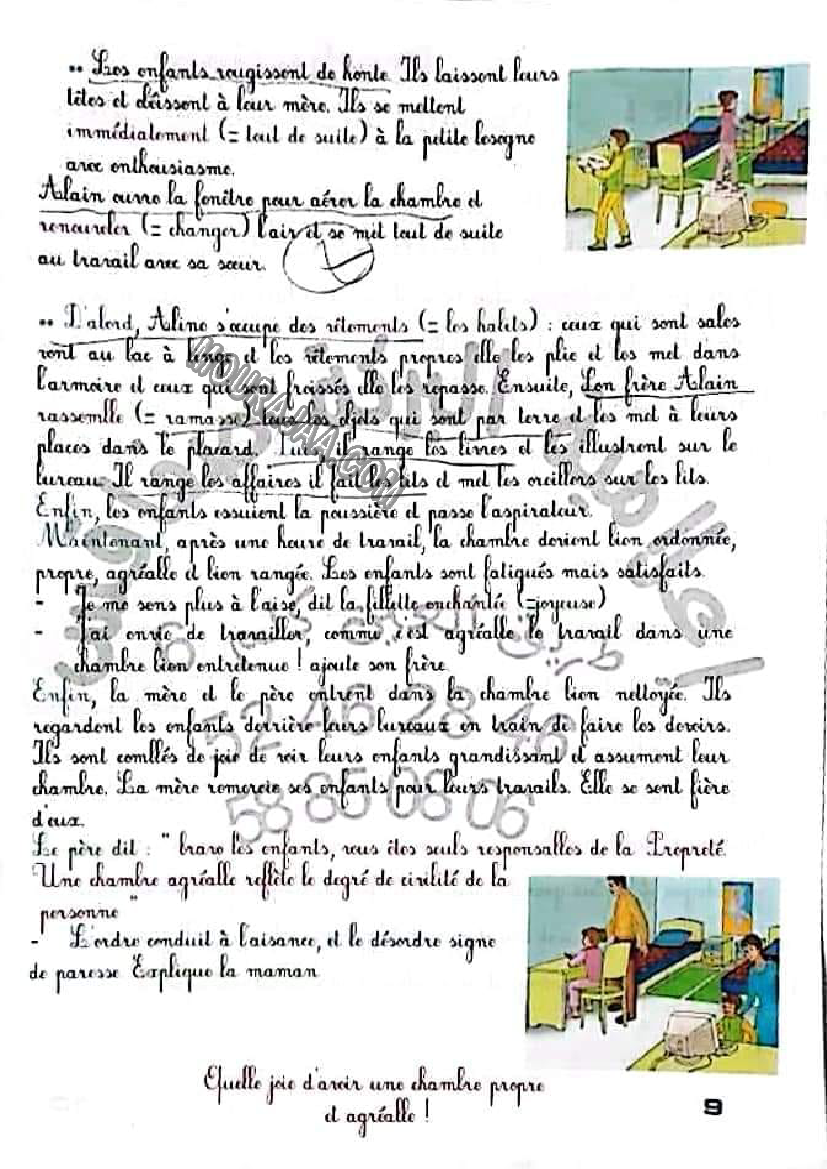 •• Les enfants rougissent de honte. Ils baissent leurs
têtes et obéissent à leur mère. Ils se mettent
immédiatement (= tout de suite) à la petite besogne
avec enthousiasme.
Alain ouvre la fenêtre pour aérer la chambre et
renouveler (= changer) l'air et se mit tout de suite
au travail avec sa sœur.
•• D'abord, Aline s'occupe des vêtements (= les habits) : ceux qui sont sales
vont au bac à linge et les vêtements propres elle les plie et les met dans
l'armoire et ceux qui sont froissés elle les repasse. Ensuite, Son frère Alain
rassemble (= ramasse) tous les objets qui sont par terre et les met à leurs
places dans le placard. Puis il range les livres et les illustrent sur le
bureau. Il range les affaires il fait les lits et met les oreillers sur les lits.
Enfin, les enfants essuient la poussière et passe l'aspirateur.
Maintenant, après une heure de travail, la chambre devient bien ordonnée,
propre, agréable et bien rangée. Les enfants sont fatigués mais satisfaits.
- Je me sens plus à l'aise, dit la fillette enchantée (=joyeuse)
- J'ai envie de travailler, comme c'est agréable le travail dans une
chambre bien entretenue ! ajoute son frère
Enfin, la mère et le père entrent dans la chambre bien nettoyée. Ils
regardent les enfants derrière leurs bureaux en train de faire les devoirs.
Ils sont comblés de joie de voir leurs enfants grandissant et assument leur
chambre. La mère remercie ses enfants pour leurs travails. Elle se sent fière
d'eux.
Le père dit : " bravo les enfants, vous êtes seuls responsables de la Propreté.
Une chambre agréable reflète le degré de civilité de la
personne "
- L'ordre conduit à l'aisance, et le désordre signe
de paresse Explique la maman
Quelle joie d'avoir une chambre propre
et agréable !
9
MOURAJAA.COM
52 46 28 46
58 85 08 06